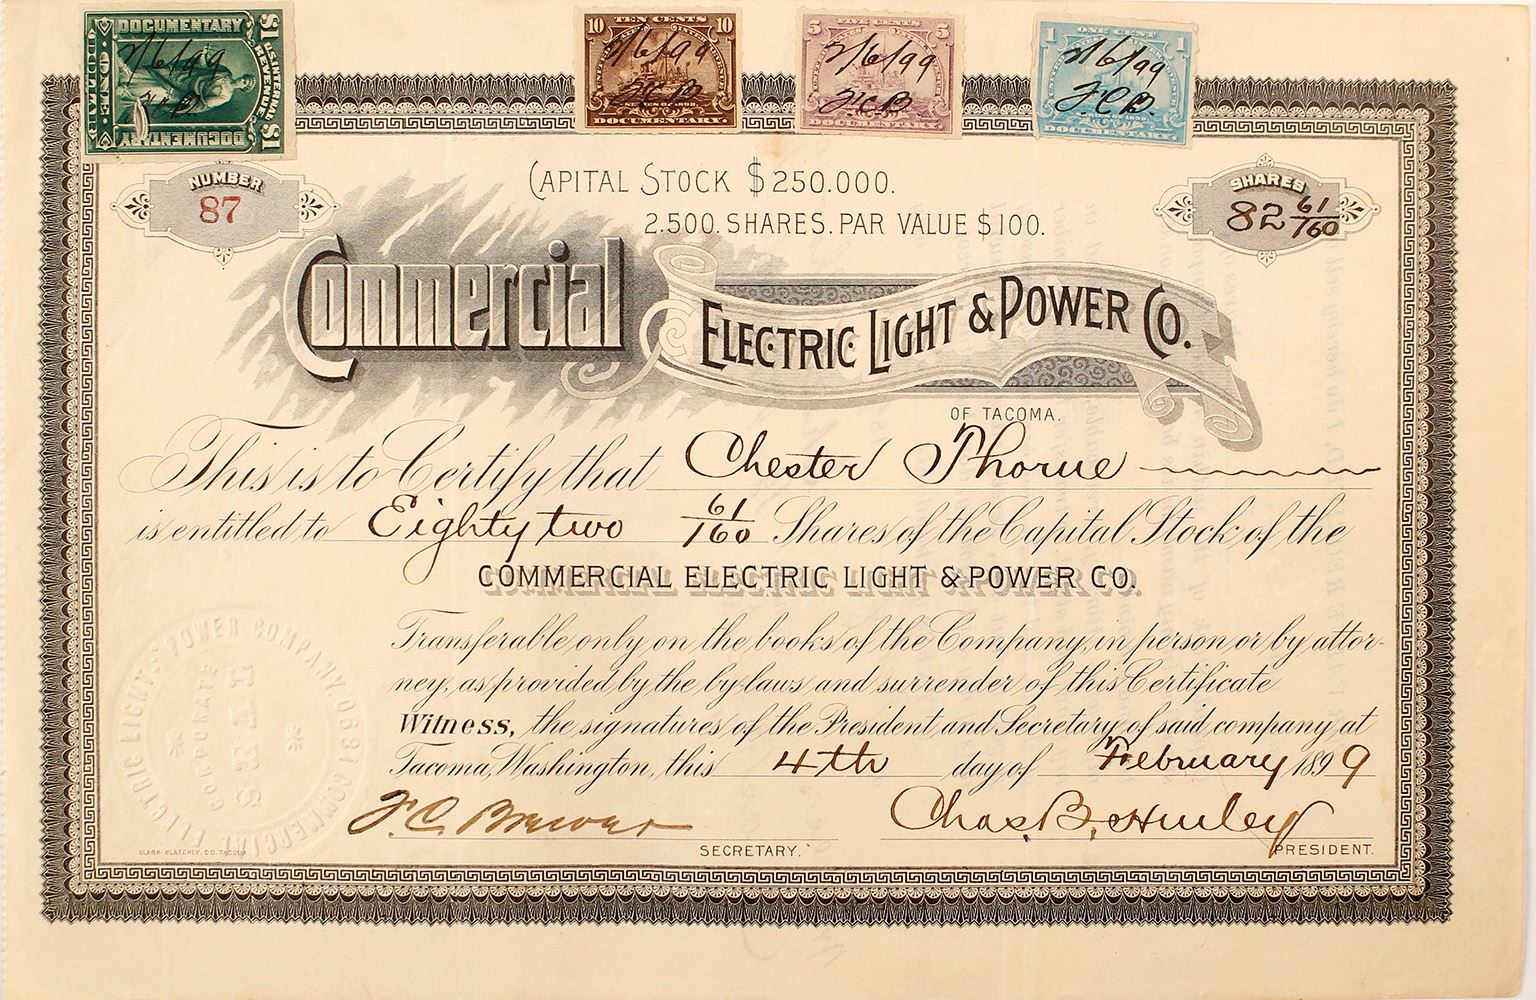 DOCUMENTARY
$1 U.S. INTERNAL REVENUE $1
ONE DOLLAR
DOCUMENTARY
2/6/99
F.C.B.
10 TEN CENTS 10
2/6/99
F.C.B.
DOCUMENTARY.
5 FIVE CENTS 5
2/6/99
F.C.B.
DOCUMENTARY.
1 ONE CENT 1
2/6/99
F.C.B.
DOCUMENTARY.
NUMBER
87
CAPITAL STOCK $250.000.
2.500. SHARES. PAR VALUE $100.
SHARES
82 61/160
Commercial ELECTRIC LIGHT & POWER CO.
OF TACOMA.
This is to Certify that Chester Thorne
is entitled to Eighty two 61/160 Shares of the Capital Stock of the
COMMERCIAL ELECTRIC LIGHT & POWER CO.
Transferable only on the books of the Company, in person or by attor-
ney, as provided by the by-laws and surrender of this Certificate
Witness, the signatures of the President and Secretary, of said company at
Tacoma, Washington, this 4th day of February 1899
COMMERCIAL ELECTRIC LIGHT & POWER COMPANY. 1890
CORPORATE
SEAL
F. C. Brewer
Chas. B. Hurley
SECRETARY.
PRESIDENT.
CLARK-BLATCHLY. CO. TACOMA.